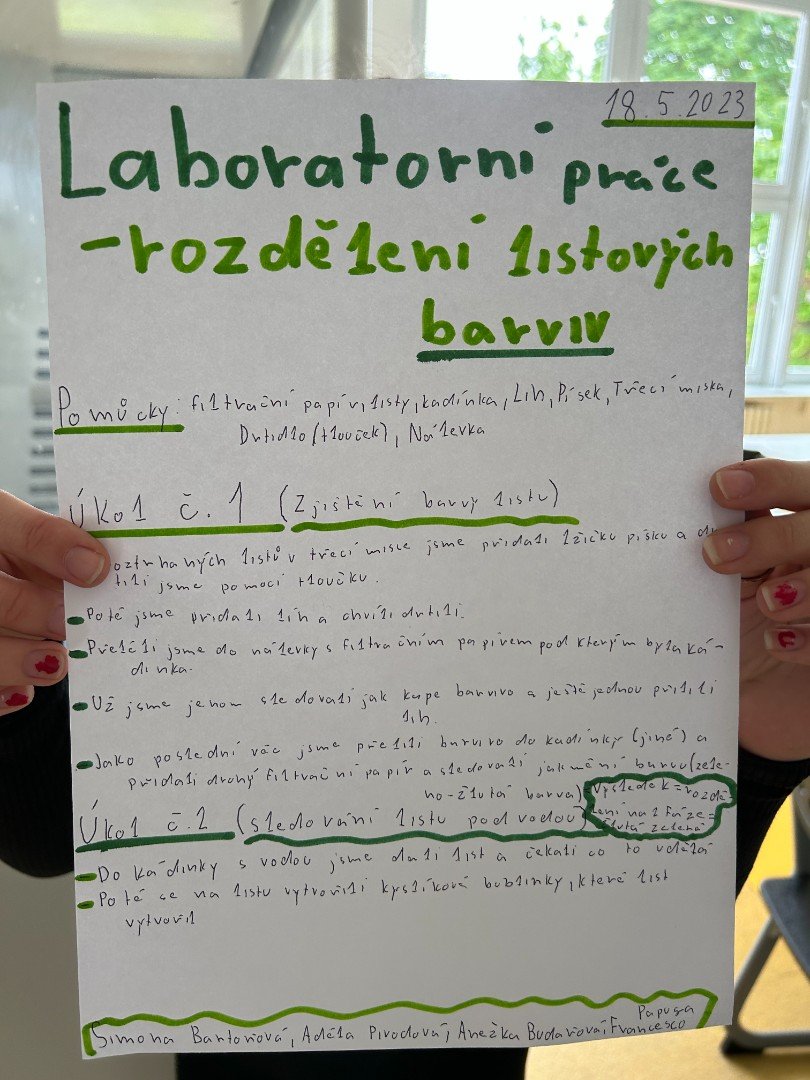 18.5.2023
Laboratorní práce
-rozdělení listových
barviv
Pomůcky: filtrační papír, listy, kadínka, Líh, Písek, Třecí miska,
Drtidlo (tlouček), Nálevka
Úkol č. 1 (Zjištění barvy listu)
oztrhaných listů v třecí misce jsme přidali lžičku písku a dr
tili jsme pomocí tloučku.
Poté jsme přidali líh a chvíli drtili.
Přelili jsme do nálevky s filtračním papírem pod kterým byla ká-
dinka.
Už jsme jenom sledovali jak kape barvivo a ještě jednou přilili
líh.
Jako poslední věc jsme přelili barvivo do kadínky (jiné) a
přidali druhý filtrační papír a sledovali jak mění barvu (zele-
no-žlutá barva) Výsledek = rozdě
lení na 2 fáze =
žlutá zelená
Úkol č. 2 (sledování listu pod vodou)
Do kádinky s vodou jsme dali list a čekali co to udělá
Poté se na listu vytvořili kyslíková bublinky, které list
vytvořil
Papuga
Simona Bartoňová, Adéla Pivodová, Anežka Budařová, Francesco